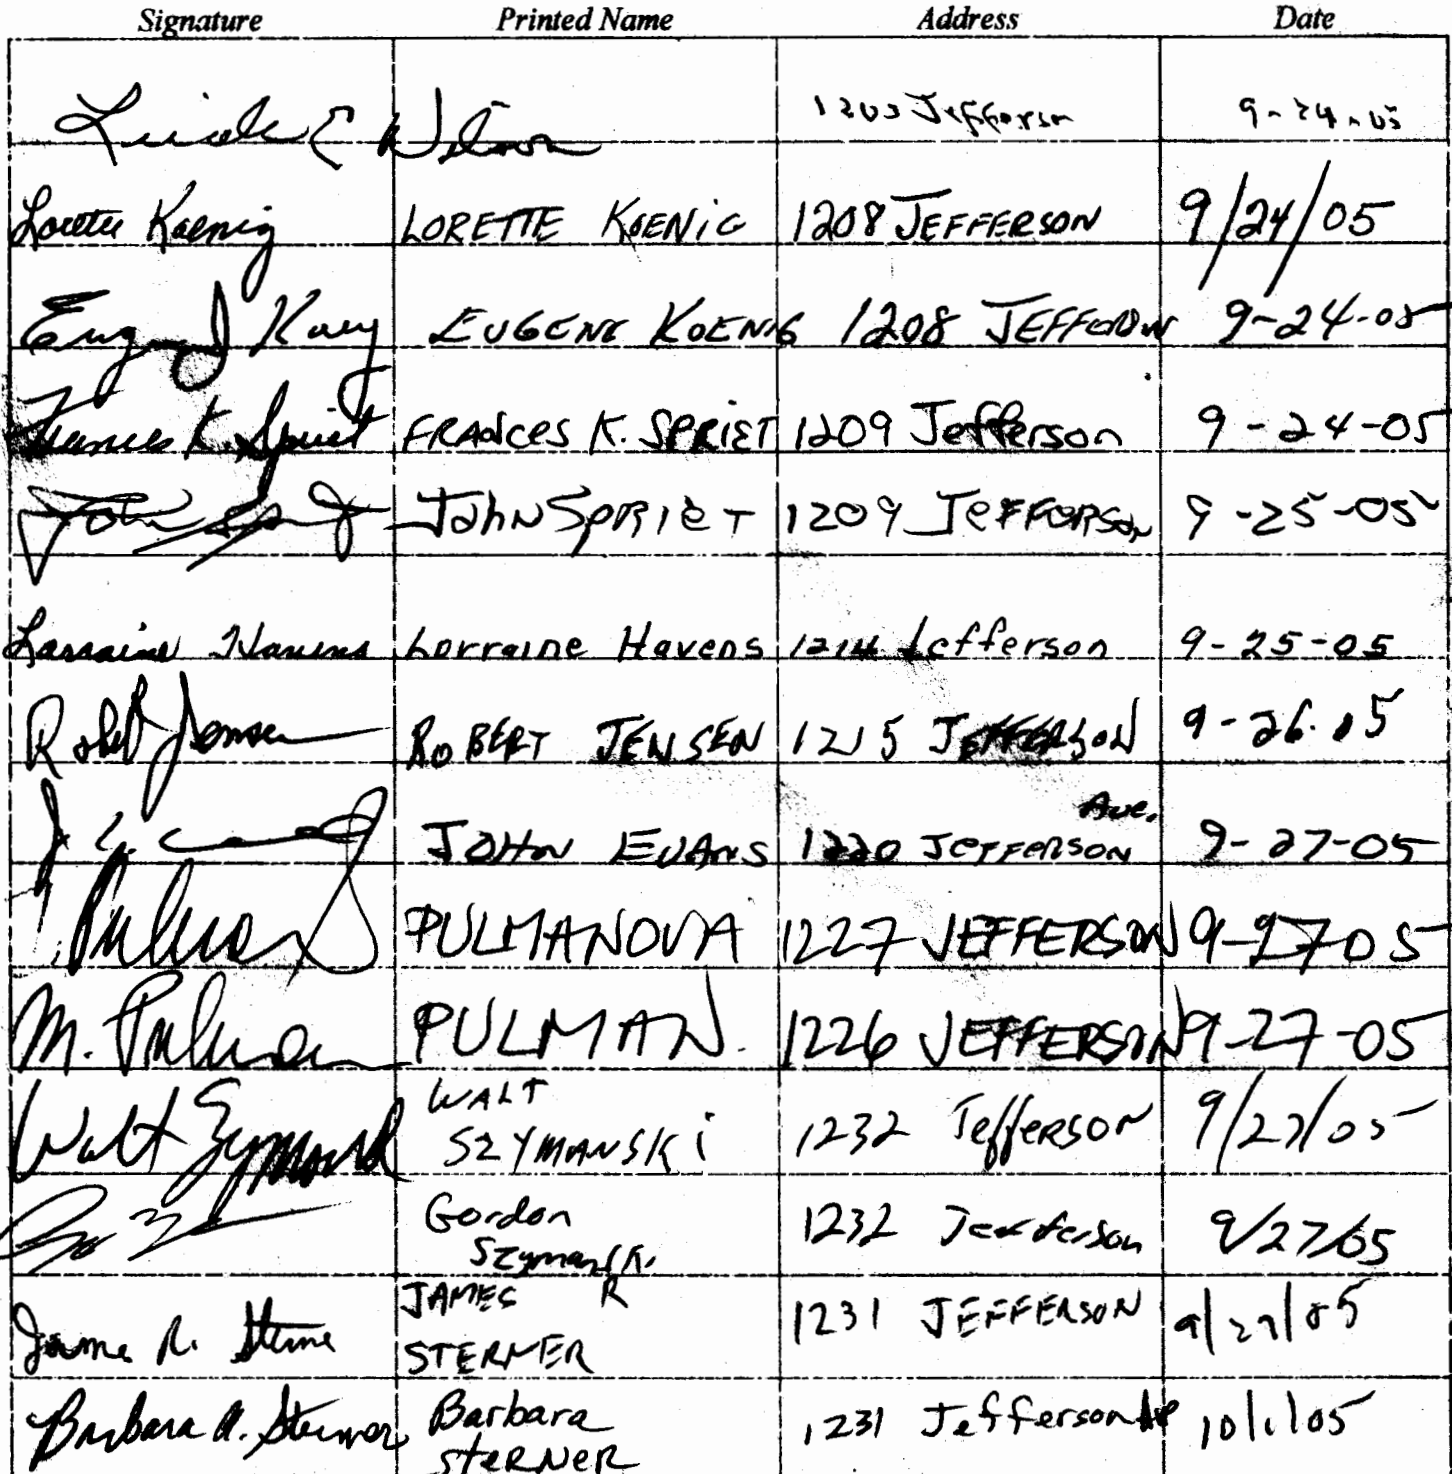 Signature Printed Name Address Date
Linda E Wilson 1203 Jefferson 9-24-05
Lorette Koenig LORETTE KOENIG 1208 JEFFERSON 9/24/05
Eugene J Koenig EUGENE KOENIG 1208 JEFFERSON 9-24-05
Frances K. Spriet FRANCES K. SPRIET 1209 Jefferson 9-24-05
John Spriet JOHN SPRIET 1209 JEFFERSON 9-25-05
Lorraine Havens Lorraine Havens 1214 Jefferson 9-25-05
Robert Jensen ROBERT JENSEN 1215 JEFFERSON 9-26.05
Ave.
JOHN EVANS 1220 JEFFERSON 9-27-05
PULMANOVA 1227 JEFFERSON 9-27 05
M. Pulman PULMAN. 1226 JEFFERSON 9-27-05
Walt Szymanski WALT
SZYMANSKI 1232 Jefferson 9/27/05
Gordon
Szymanski 1232 Jefferson 9/27/05
JAMES R
James R. Sterner STERNER 1231 JEFFERSON 9/27/05
Barbara A. Sterner Barbara
STERNER 1231 Jefferson Ave 10/1/05